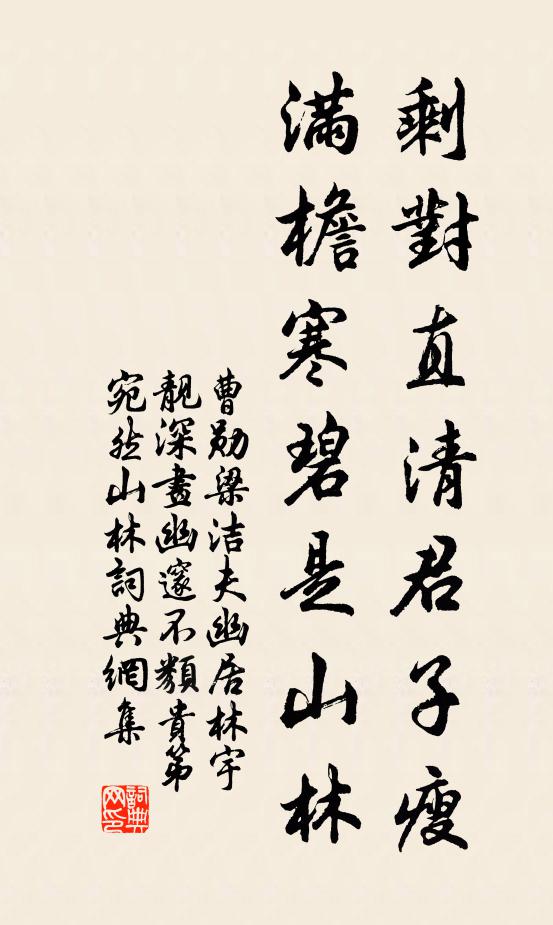 剩對直清君子瘦
滿檐寒碧是山林
曹勋梁洁夫幽居林宇
靚深盡幽邃不類貴第
宛然山林詞典網集
詞典
网印